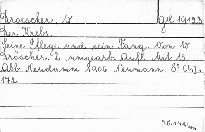 Droescher, W
Der Krebs.
Seine Pflege und sein Fang. Von W.
Dröscher. 2. umgearb. Aufl. Mit 15
Abb. Neudamm 1906 Neumann 8°
172